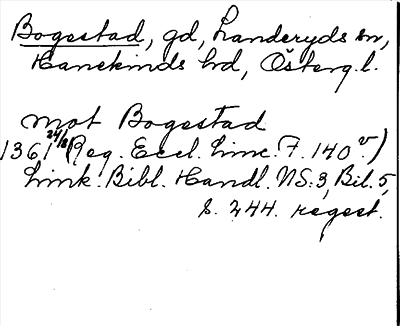 Bogestad, gd, Landeryds sn,
Hanekinds hd, Österg.l.
mot Bogestad
1361 24/8 (Reg. Eccl. Linc. F. 140 v.)
Link. Bibl. Handl. NS. 3, Bil. 5,
s. 244. regest.